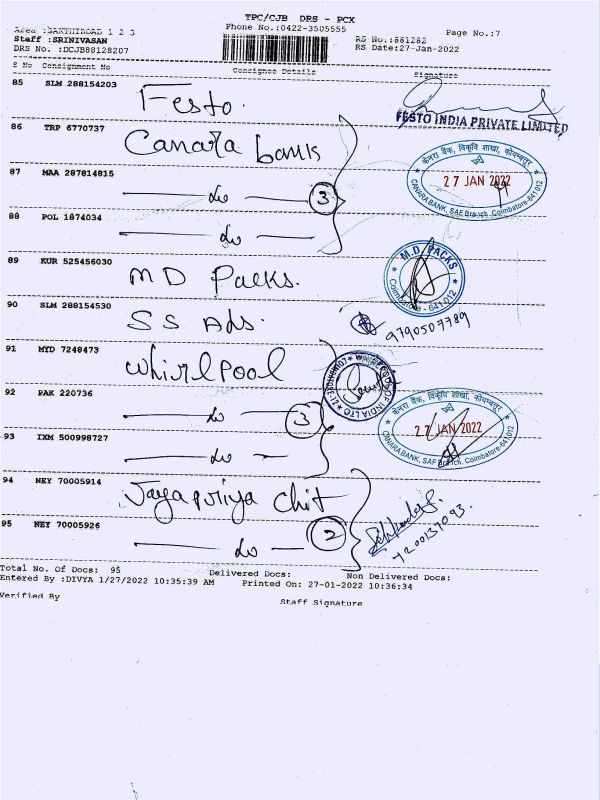 TPC/CJB DRS - PCX
Phone No.:0422-3505555
Page No.:7
Area :GANTHIROAD 1 2 3
Staff :SRINIVASAN
RS No.:881282
DRS No. :DCJB88128207
RS Date:27-Jan-2022
S No Consignment No Consignee Details Signature
85 SLM 288154203
Festo.
FESTO INDIA PRIVATE LIMITED
86 TRP 6770737
Canara bank
केनरा बैंक, विकृवि शाखा, कोयम्बत्तूर
27 JAN 2022
CANARA BANK, SAF Branch, Coimbatore-641 012
87 MAA 287814815
do
3
88 POL 1874034
do
89 KUR 525456030
MD Packs.
M.D. PACKS
Coimbatore - 641-012
90 SLM 288154530
SS Ads.
9790507789
91 MYD 7248473
Whirlpool
WHIRLPOOL OF INDIA LTD
COIMBATORE-12
92 PAK 220736
do
3
केनरा बैंक, विकृवि शाखा, कोयम्बत्तूर
27 JAN 2022
CANARA BANK, SAF Branch, Coimbatore-641 012
93 IXM 500998727
do
94 NEY 70005914
Jayapriya Chit
2
7200137093.
95 NEY 70005926
do
Total No. Of Docs: 95 Delivered Docs: Non Delivered Docs:
Entered By :DIVYA 1/27/2022 10:35:39 AM Printed On: 27-01-2022 10:36:34
Verified By Staff Signature